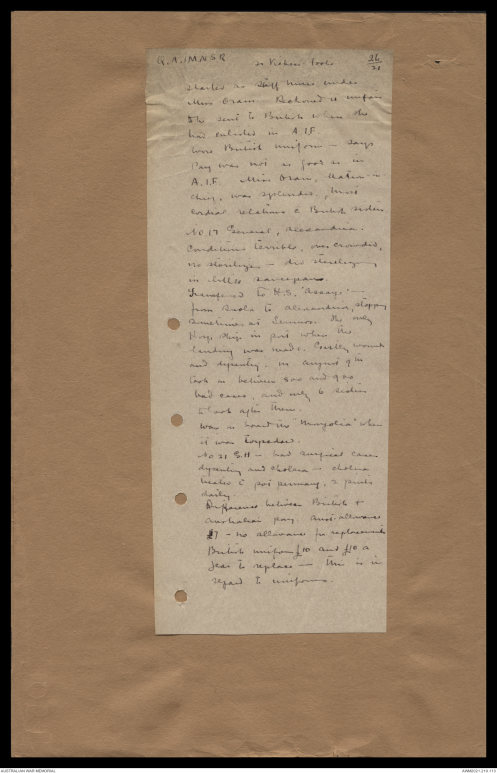 Q.A.I.M.N.S.R 26/21
Started as Staff Nurse under
Miss Oram. Reckoned it unfair
to be sent to British when she
had enlisted in A.I.F.
Wore British uniform – says
Pay was not as good as in
A.I.F. Miss Oram, Matron-in
Chief, was splendid, most
cordial relations c British sisters
No 17 General, Alexandria.
Conditions terrible, over crowded,
no sterilizer – did sterilizing
in little saucepans.
Transferred to H.S. "Assaye" –
from Suvla to Alexandria, stopping
sometimes at Lemnos. The only
Hosp. Ship in port when the
landing was made. Courtly wounds
and dysentry. In August 9th
took in between 800 and 900
bad cases, and only 6 sisters
to look after them.
Was on board the "Mongolia" when
it was torpedoed.
No 21 G.H – had surgical cases
dysentry and cholera – cholera
treated c pot. permang., 2 pints
daily.
Difference between British &
Australian pay. Aust. allowance
£7 – no allowance for replacements
British uniform £10 and £10 a
year to replace – this is in
regard to uniforms.
AUSTRALIAN WAR MEMORIAL